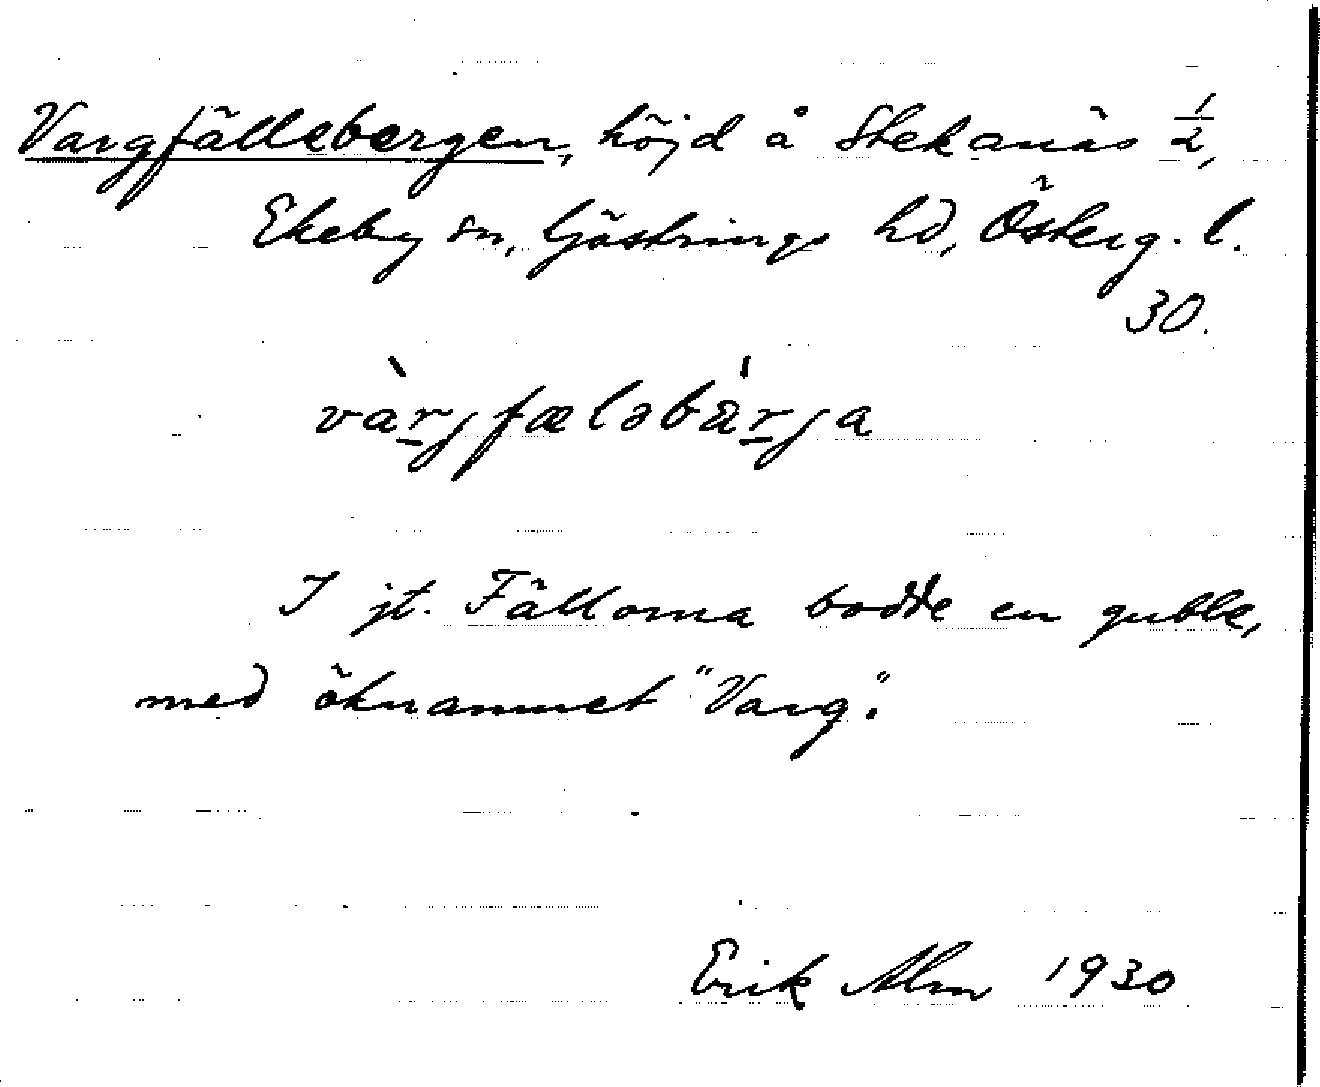 Vargfällebergen, höjd å Stekanäs 1/2,
Ekeby sn, Göstrings hd, Österg. l.
30.
vàrjfæləbá̈rja
I jt. Fällorna bodde en gubbe,
med öknamnet "Varg".
Erik Alm 1930